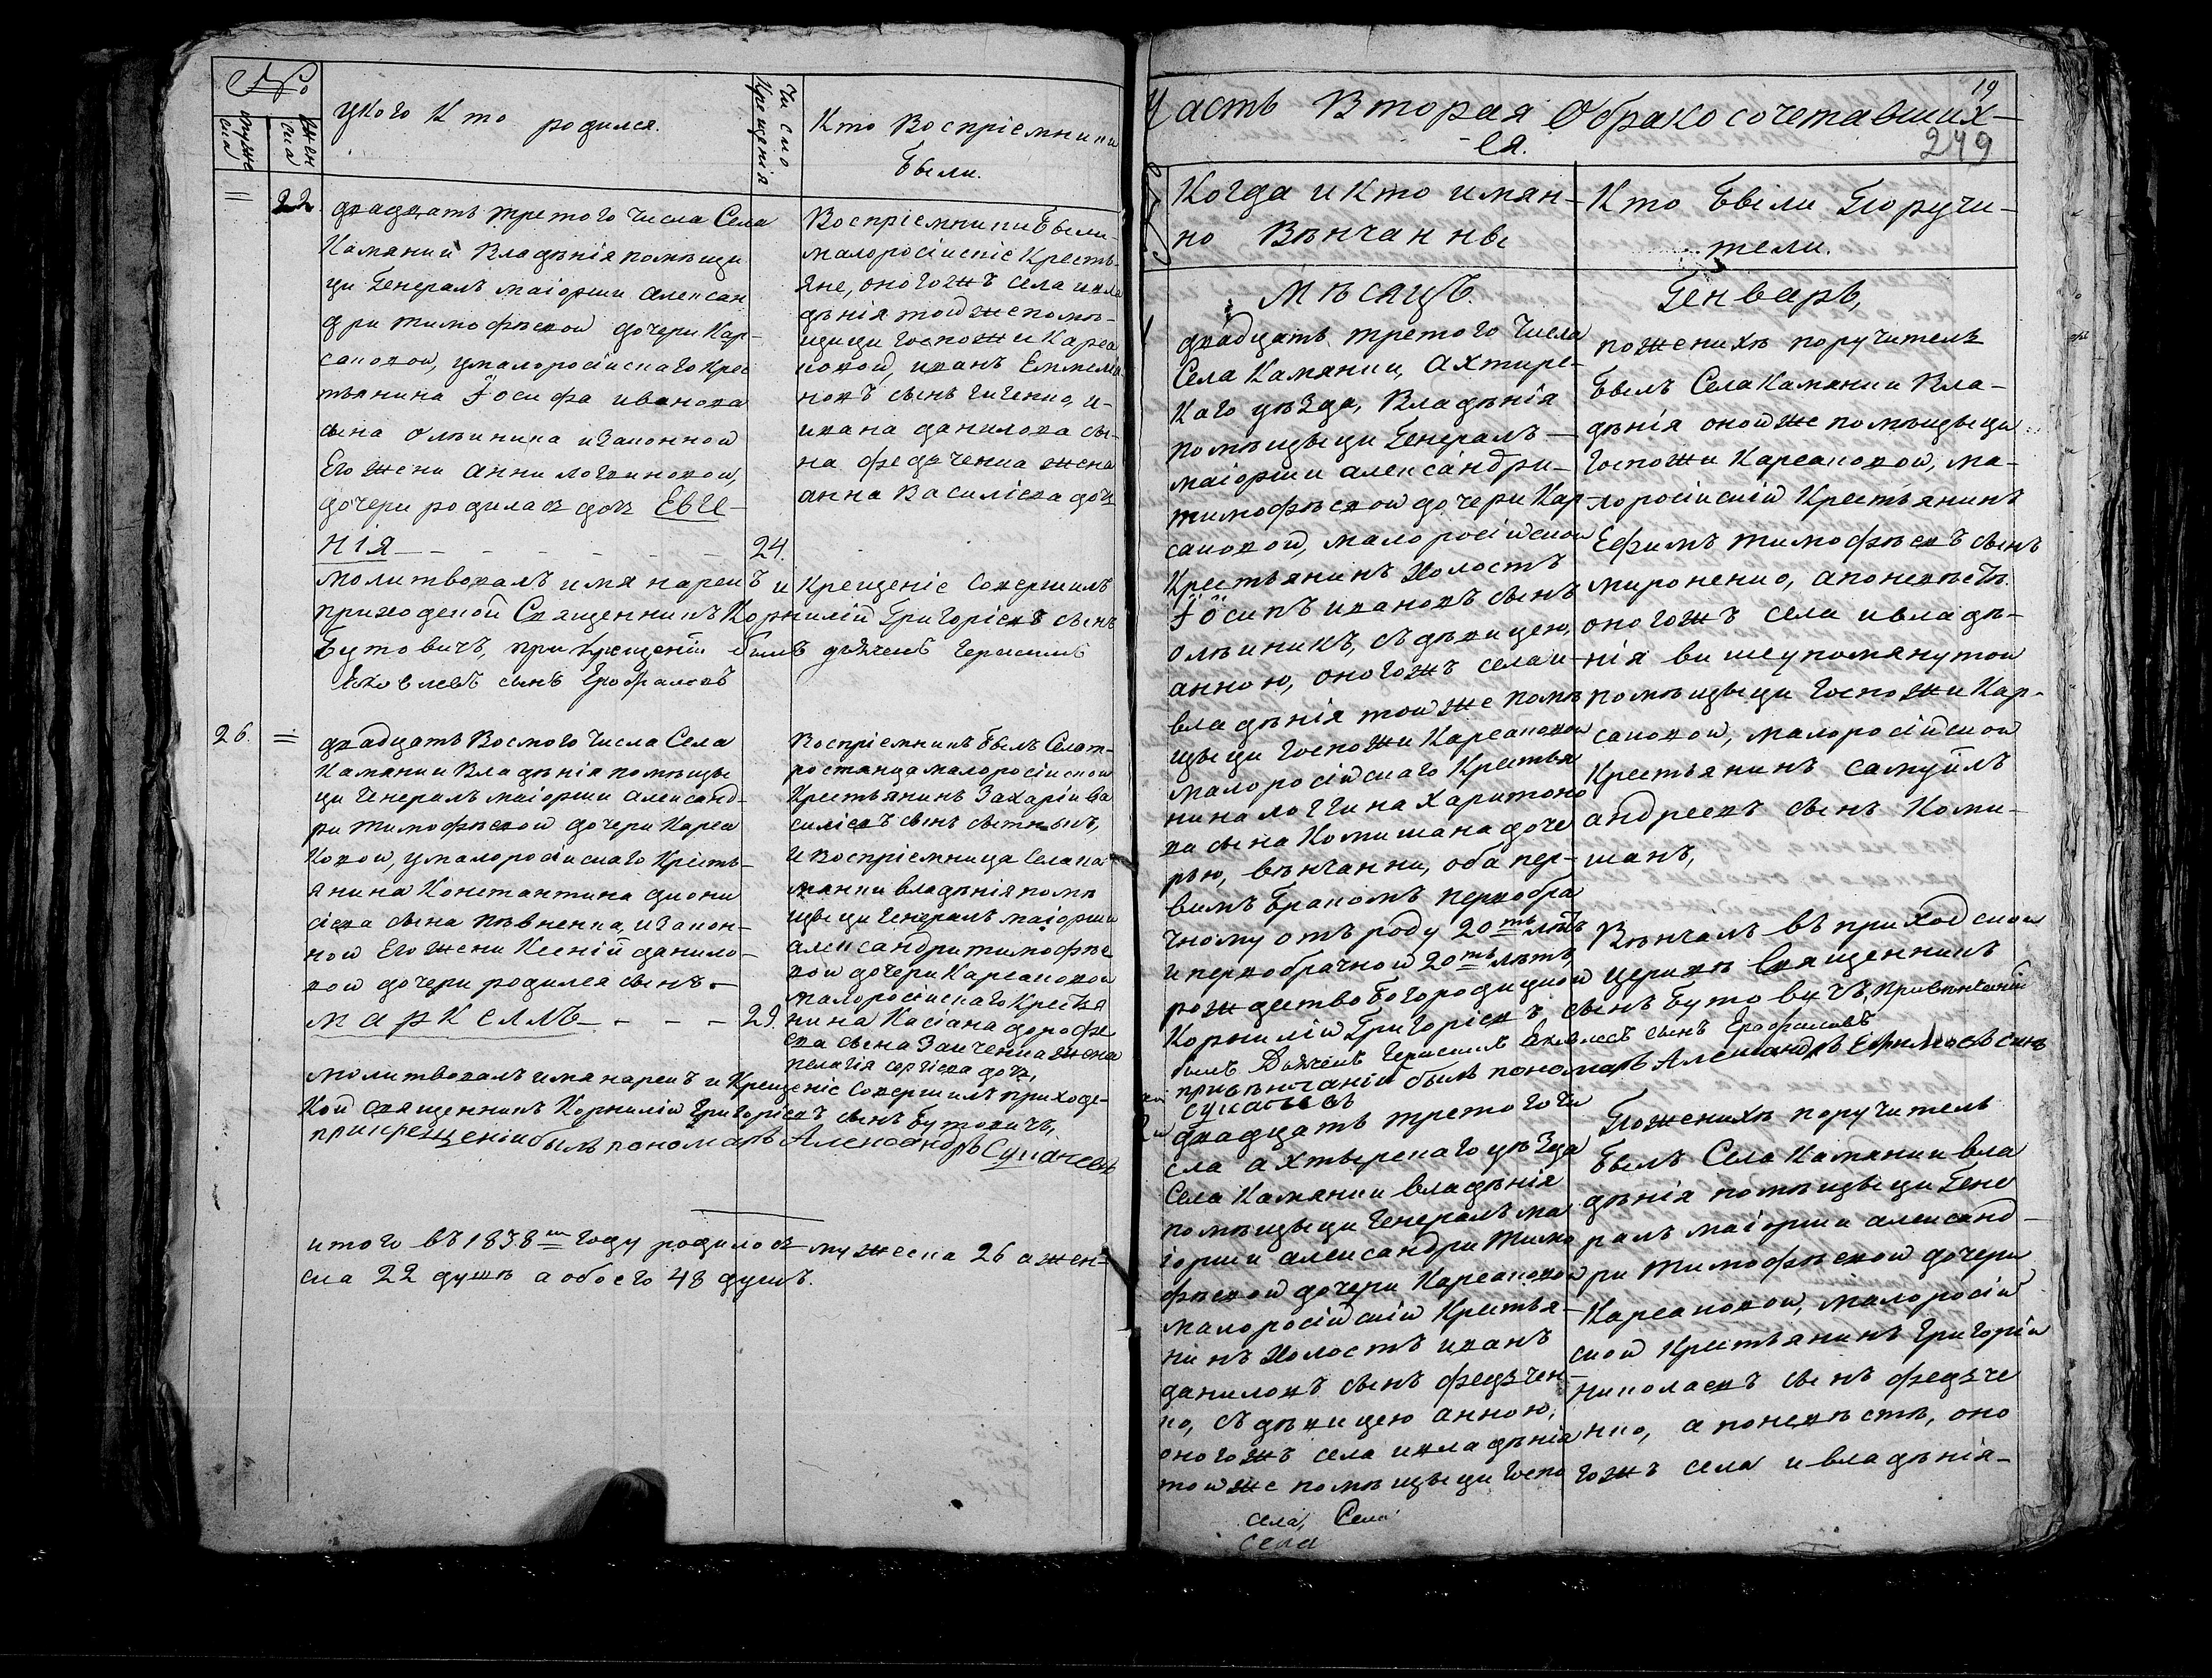 №
мужеска
женска
у кого Кто родился.
Число Крещенія
Кто Воспріемники
были.
22.
двадцать третого числа Села
Камянки Владѣнія помѣщи
ци Генералъ маіорши алексан
дри тимофѣевой дочери Кар-
саковой, умалоросійскаго Крес
тьянина Іосифа иванова
сына олѣйника изаконной
Его жени анни логвиновой,
дочери родилась дочь Евге-
нія 24.
Воспріемники были
малоросійскіе Кресть-
яне, оногожъ села ивла
дѣнія тойже помѣ-
щици госпожи Карса
ковой, иванъ Еммелiя
новъ сынъ гиченко, и-
ивана данилова сы-
на федченка жена
анна Василіева дочь
молитвовалъ имя нарекъ и Крещеніе Совершилъ
приходской Священникъ Корнилій Григоріевъ сынъ
Бутовичъ, при крещеніи былъ дьячекъ Герасимъ
Яковлевъ сынъ Ерофаловъ
26.
двадцать Восмого числа Села
Камянки Владѣнія помѣщы
ци Генералъ маіорши александ-
ри тимофѣевой дочери Карса
ковой, умалоросійскаго Кресть-
янина Константина диони
сіева сына пѣвненка, изакон-
ной Его жени Ксеній данило-
вой дочери родился сынъ-
маркеллъ 29.
Воспріемникъ былъ Села т-
ростянца малоросійской
Крестьянинъ Захарій ва
силіевъ сынъ сытныкъ,
и воспріемница Села ка
мянки владѣнія помѣ
щыци генералъ маіорши
александри тимофѣе
вой дочери Карсаковой
малоросійскаго Крестья
нина Касіана дорофе
ева сына Заиченка жена
пелагія сергіева дочь,
молитвовалъ имя нарекъ и Крещеніе Совершилъ приходс-
кой священникъ Корнилій григоріевъ сынъ Бутовичъ,
при крещеніи былъ пономарь Александръ Сукачевъ
итого въ 1838м году родилось мужеска 26 а жен-
ска 22 душъ а обоего 48 душъ.
19
Часть Вторая О бракосочетавших-
-ся.
249
Когда и кто имян-
но Вѣнчанны
Кто были Поручи-
тели.
Мѣсяцъ.
Генварь,
двадцать третого числа
Села Камянки, Ахтирс-
каго уѣзда, Владѣнія
помѣщыци Генералъ-
маіорши алексáндри-
тимофѣевой дочери Кар-
саковой, малоросійской
Крестьянинъ Холостъ
Іосипъ ивановъ сынъ
олѣиникъ, съ дѣвицею,
анною, оногожъ села и-
владѣнія той же помѣ
щыци Госпожи Карсаковой
малоросійскаго Крестья
нина логгина Харитоно
ва сына Комишана доче
рью, вѣнчанни, оба пер-
вимъ бракомъ первобра
чному отъ роду 20ть лѣтъ
и первобрачной 20ть лѣтъ
по женихѣ поручитель
былъ Села Камянки Вла-
дѣнія оной же помѣщыци
Госпожи Карсаковой, ма-
лоросійскій Крестьянинъ
Ефимъ тимофѣевъ сынъ
мироненко, а по невѣстѣ
оногожъ села и владѣ-
нія вишеупомянутой
помѣщыци Госпожи Кар-
саковой, малоросійской
Крестьянинъ самуйлъ
андреевъ сынъ Коми-
шанъ,
Вѣнчалъ въ приходской
рождествобогородицкой церкви Священникъ
Корнилій Григоріевъ сынъ Бутовичъ, при вѣнчаніи
былъ Дьячекъ Герасимъ Яковлевъ сынъ Ерофаловъ
при вѣнчаніи былъ пономарь Александръ Ефимовъ сынъ
Сукачевъ
2й
двадцать третого чи
сла ахтырскаго уѣзда
Села Камянки владѣнія
помѣщыци Генералъ ма
іорши александри тимо
фѣевой дочери Карсаковой
малоросійскій Крестья-
нинъ Холостъ иванъ
даниловъ сынъ федчен-
ко, съ дѣвицею анною,
оногожъ села ивладѣнія
той же помѣщыци Госпо
По женихѣ поручитель
былъ Села Камянки вла
дѣнія помѣщыци Гене
ралъ маіорши александ-
ри тимофѣевой дочери
Карсаковой, малоросій
ской Крестьянинъ григорій
николаевъ сынъ федче
нко, а по невѣстѣ, оно
гожъ села и владѣнія-
села, Села
села